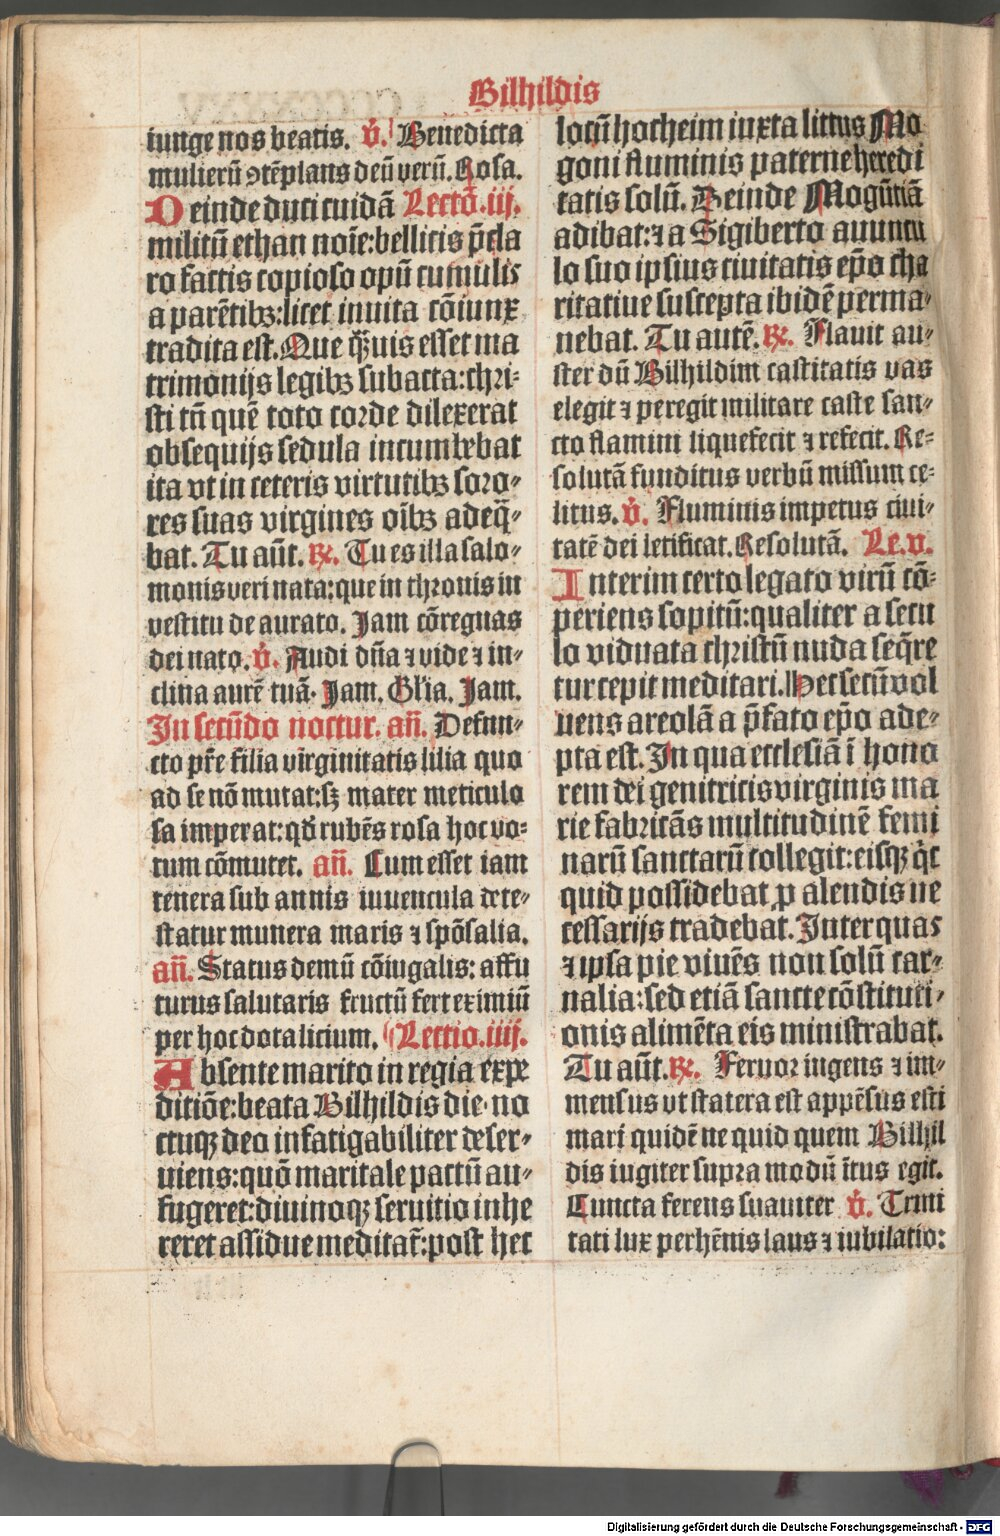 Bilhildis
iunge nos beatis. v̓. Benedicta
mulierū ꝯtēplans deū verū. Rosa.
Deinde duci cuidā Lectō. iij.
militū ethan noīe: bellicis p̄cla
ro factis copioso opū cumulis
a parētibꝫ: licet inuita cōiunx
tradita est. Que q̄uis esset ma
trimonijs legibꝫ subacta: chri⸗
sti tn̄ quē toto corde dilexerat
obsequijs sedula incumbebat
ita vt in ceteris virtutibꝫ soro⸗
res suas virgines oībꝫ adeq̄⸗
bat. Tu aūt. ℞. Tu es illa salo⸗
monis veri nata: que in thronis in
vestitu de aurato. Jam cōregnas
dei nato. v̓. Audi dn̄a ⁊ vide ⁊ in⸗
clina aurē tuā. Jam. Gl'ia. Jam.
In secūdo noctur. an̄. Defun⸗
cto pr̄e filia virginitatis lilia quo
ad se nō mutat: sꝫ mater meticulo
sa imperat: qđ rubēs rosa hoc vo⸗
tum cōmutet. an̄. Cum esset iam
tenera sub annis iuuencula dete⸗
statur munera maris ⁊ spōsalia.
an̄. Status demū cōiugalis: affu
turus salutaris fructū fert eximiū
per hoc dotalicium. Lectio. iiij.
Absente marito in regia expe
ditiōe: beata Bilhildis die no
ctuqꝫ deo infatigabiliter deser⸗
uiens: quō maritale pactū au⸗
fugeret: diuinoqꝫ seruitio inhe
reret assidue meditat᷑: post hec
locū hocheim iuxta littus Mo
goni fluminis paterne heredi
tatis solū. Deinde Mogūtiā
adibat: ⁊ a Sigiberto auuncu
lo suo ipsius ciuitatis ep̄o cha
ritatiue suscepta ibidē perma⸗
nebat. Tu autē. ℞. Flauit au⸗
ster dū Bilhildim castitatis vas
elegit ⁊ peregit militare caste san⸗
cto flamini liquefecit ⁊ refecit. Re⸗
solutā funditus verbū missum ce⸗
litus. v̓. Fluminis impetus ciui⸗
tatē dei letificat. Resolutā. Le. v.
Interim certo legato virū cō⸗
periens sopitū: qualiter a secu
lo viduata christū nuda seq̄re
tur cepit meditari. Hec secū vol
uens areolā a p̄fato ep̄o ade⸗
pta est. In qua ecclesiā ī hono
rem dei genitricis virginis ma
rie fabricās multitudinē femi
narū sanctarū collegit: eisqꝫ q̇c
quid possidebat ꝓ alendis ne
cessarijs tradebat. Inter quas
⁊ ipsa pie viuēs non solū car⸗
nalia: sed etiā sancte cōstituti⸗
onis alimēta eis ministrabat.
Tu aūt. ℞. Feruor ingens ⁊ im⸗
mensus vt statera est appēsus esti
mari quidē ne quid quem Bilhil
dis iugiter supra modū ītus egit.
Cuncta ferens suauiter v̓. Trini
tati lux perhēnis laus ⁊ iubilatio:
Digitalisierung gefördert durch die Deutsche Forschungsgemeinschaft - DFG